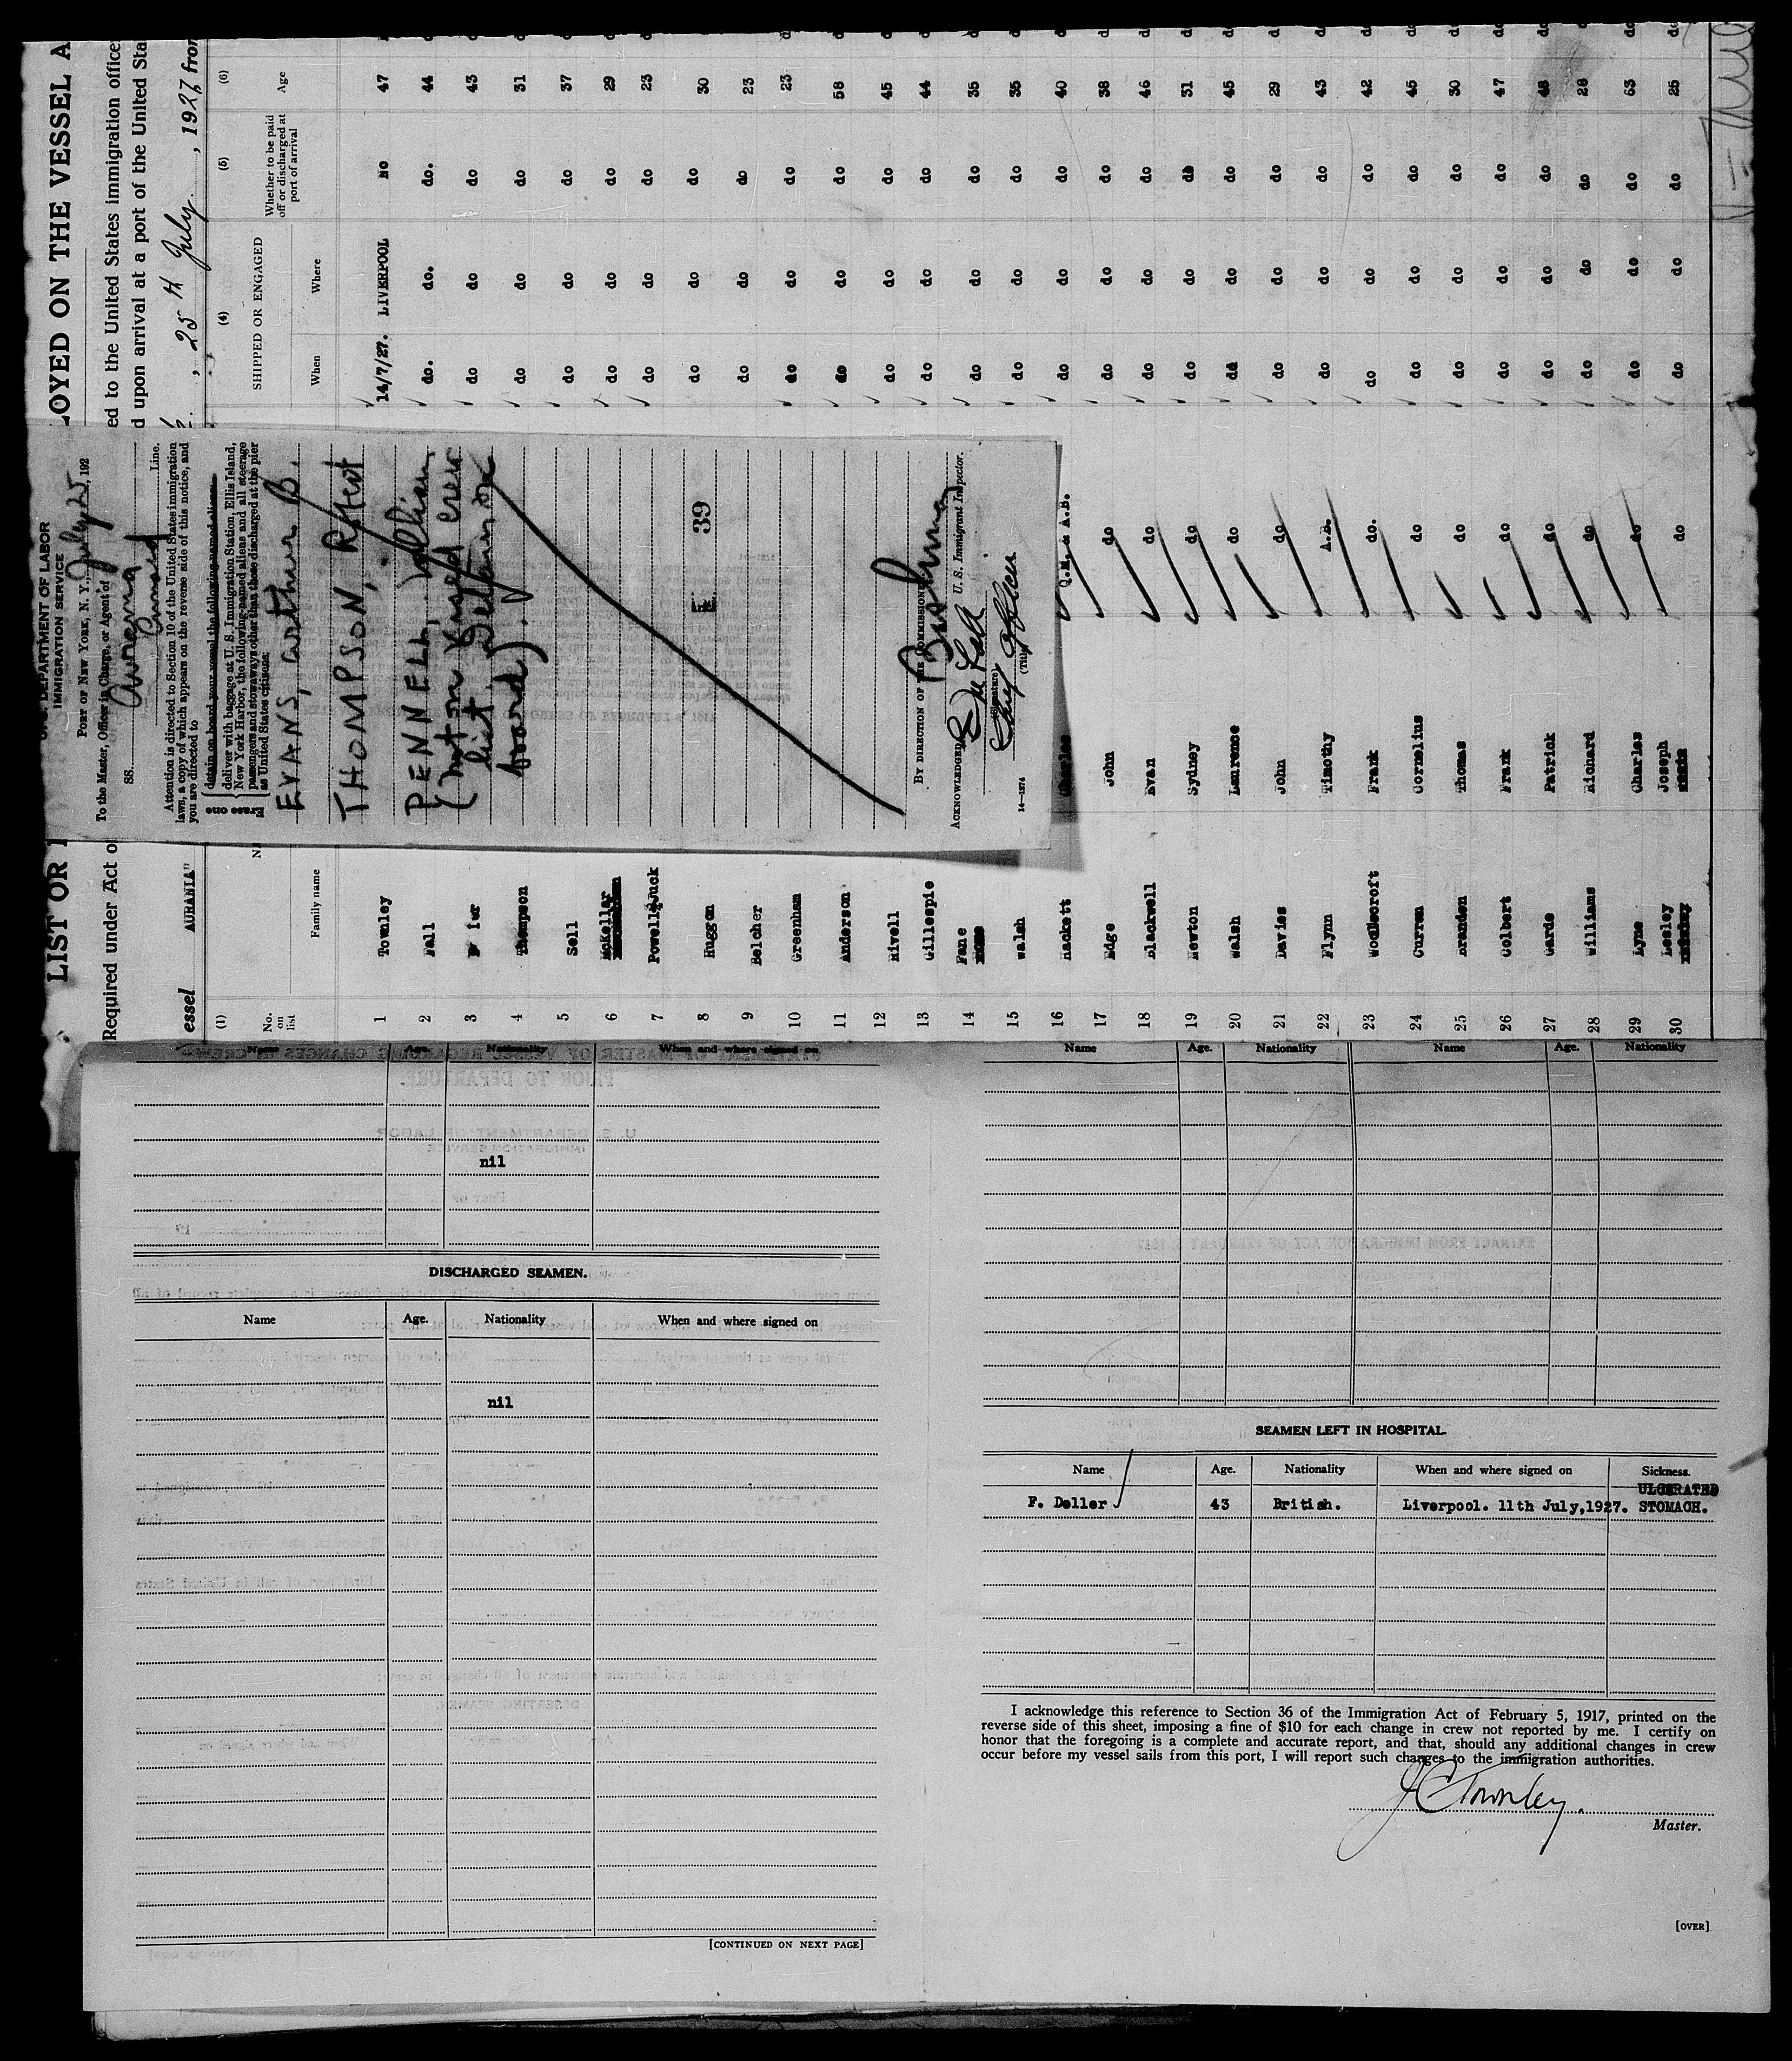 LIST OR
LOYED ON THE VESSEL A
Required under Act o
ed to the United States immigration officer
d upon arrival at a port of the United Sta
essel AURANIA"
, 25 th July , 1927 from
(1) (4) (5) (6)
No. on list
Family name
SHIPPED OR ENGAGED
When Where
Whether to be paid off or discharged at port of arrival
Age
1 Townley 14/7/27. LIVERPOOL NO 47
2 Fall do. do. do. 44
3 do do do 43
4 Thompson do do do 31
5 Sell do do do 37
6 McKellar do do do 29
7 Powell do do do 23
8 Huggon do do do 30
9 Belcher do do do 23
10 Greenham do do do 23
11 Anderson do do do 58
12 Rivell do do do 45
13 Gillespie do do do 44
14 Fane do do do 35
15 Walsh do do do 35
16 Hackett Charles Q.M. & A.B. do do do 40
17 Edge John do do do do 38
18 Blackwell Evan do do do do 46
19 Newton Sydney do do do do 31
20 Walsh Laurence do do do do 45
21 Davies John do do do do 29
22 Flynn Timothy A.B. do do do 43
23 Woodscroft Frank do. do do do 42
24 Curren Cornelius do do do do 45
25 Branden Thomas do do do do 30
26 Colbert Frank do do do do 47
27 Garde Patrick do do do do 48
28 Williams Richard do do do do 28
29 Lyne Charles do do do do 63
30 Lesley Joseph do do do do 25
U. S. DEPARTMENT OF LABOR
IMMIGRATION SERVICE
PORT OF NEW YORK, N. Y., July 25, 192
To the Master, Officer in Charge, or Agent of
SS. Aurania Cunard Line.
Attention is directed to Section 10 of the United States immigration
laws, a copy of which appears on the reverse side of this notice, and
you are directed to
Erase one
detain on board your vessel the following-named aliens:
deliver with baggage at U. S. Immigration Station, Ellis Island,
New York Harbor, the following-named aliens and all steerage
passengers and stowaways other than those discharged at the pier
as United States citizens:
EVANS, Arthur B.
THOMPSON, Robert
PENNELL, William
(not on visaed crew
list. Detain on
board).
E 39
BY DIRECTION OF THE COMMISSIONER
U. S. Immigrant Inspector.
ACKNOWLEDGED
(Signature)
(Title)
14—1274
Name Age. Nationality When and where signed on
nil
DISCHARGED SEAMEN.
Name Age. Nationality When and where signed on
nil
[CONTINUED ON NEXT PAGE]
Name Age. Nationality Name Age. Nationality
SEAMEN LEFT IN HOSPITAL.
Name Age. Nationality When and where signed on Sickness.
F. Deller 43 British. Liverpool. 11th July,1927. ULCERATED STOMACH.
I acknowledge this reference to Section 36 of the Immigration Act of February 5, 1917, printed on the
reverse side of this sheet, imposing a fine of $10 for each change in crew not reported by me. I certify on
honor that the foregoing is a complete and accurate report, and that, should any additional changes in crew
occur before my vessel sails from this port, I will report such changes to the immigration authorities.
J C Townley.
Master.
[OVER]